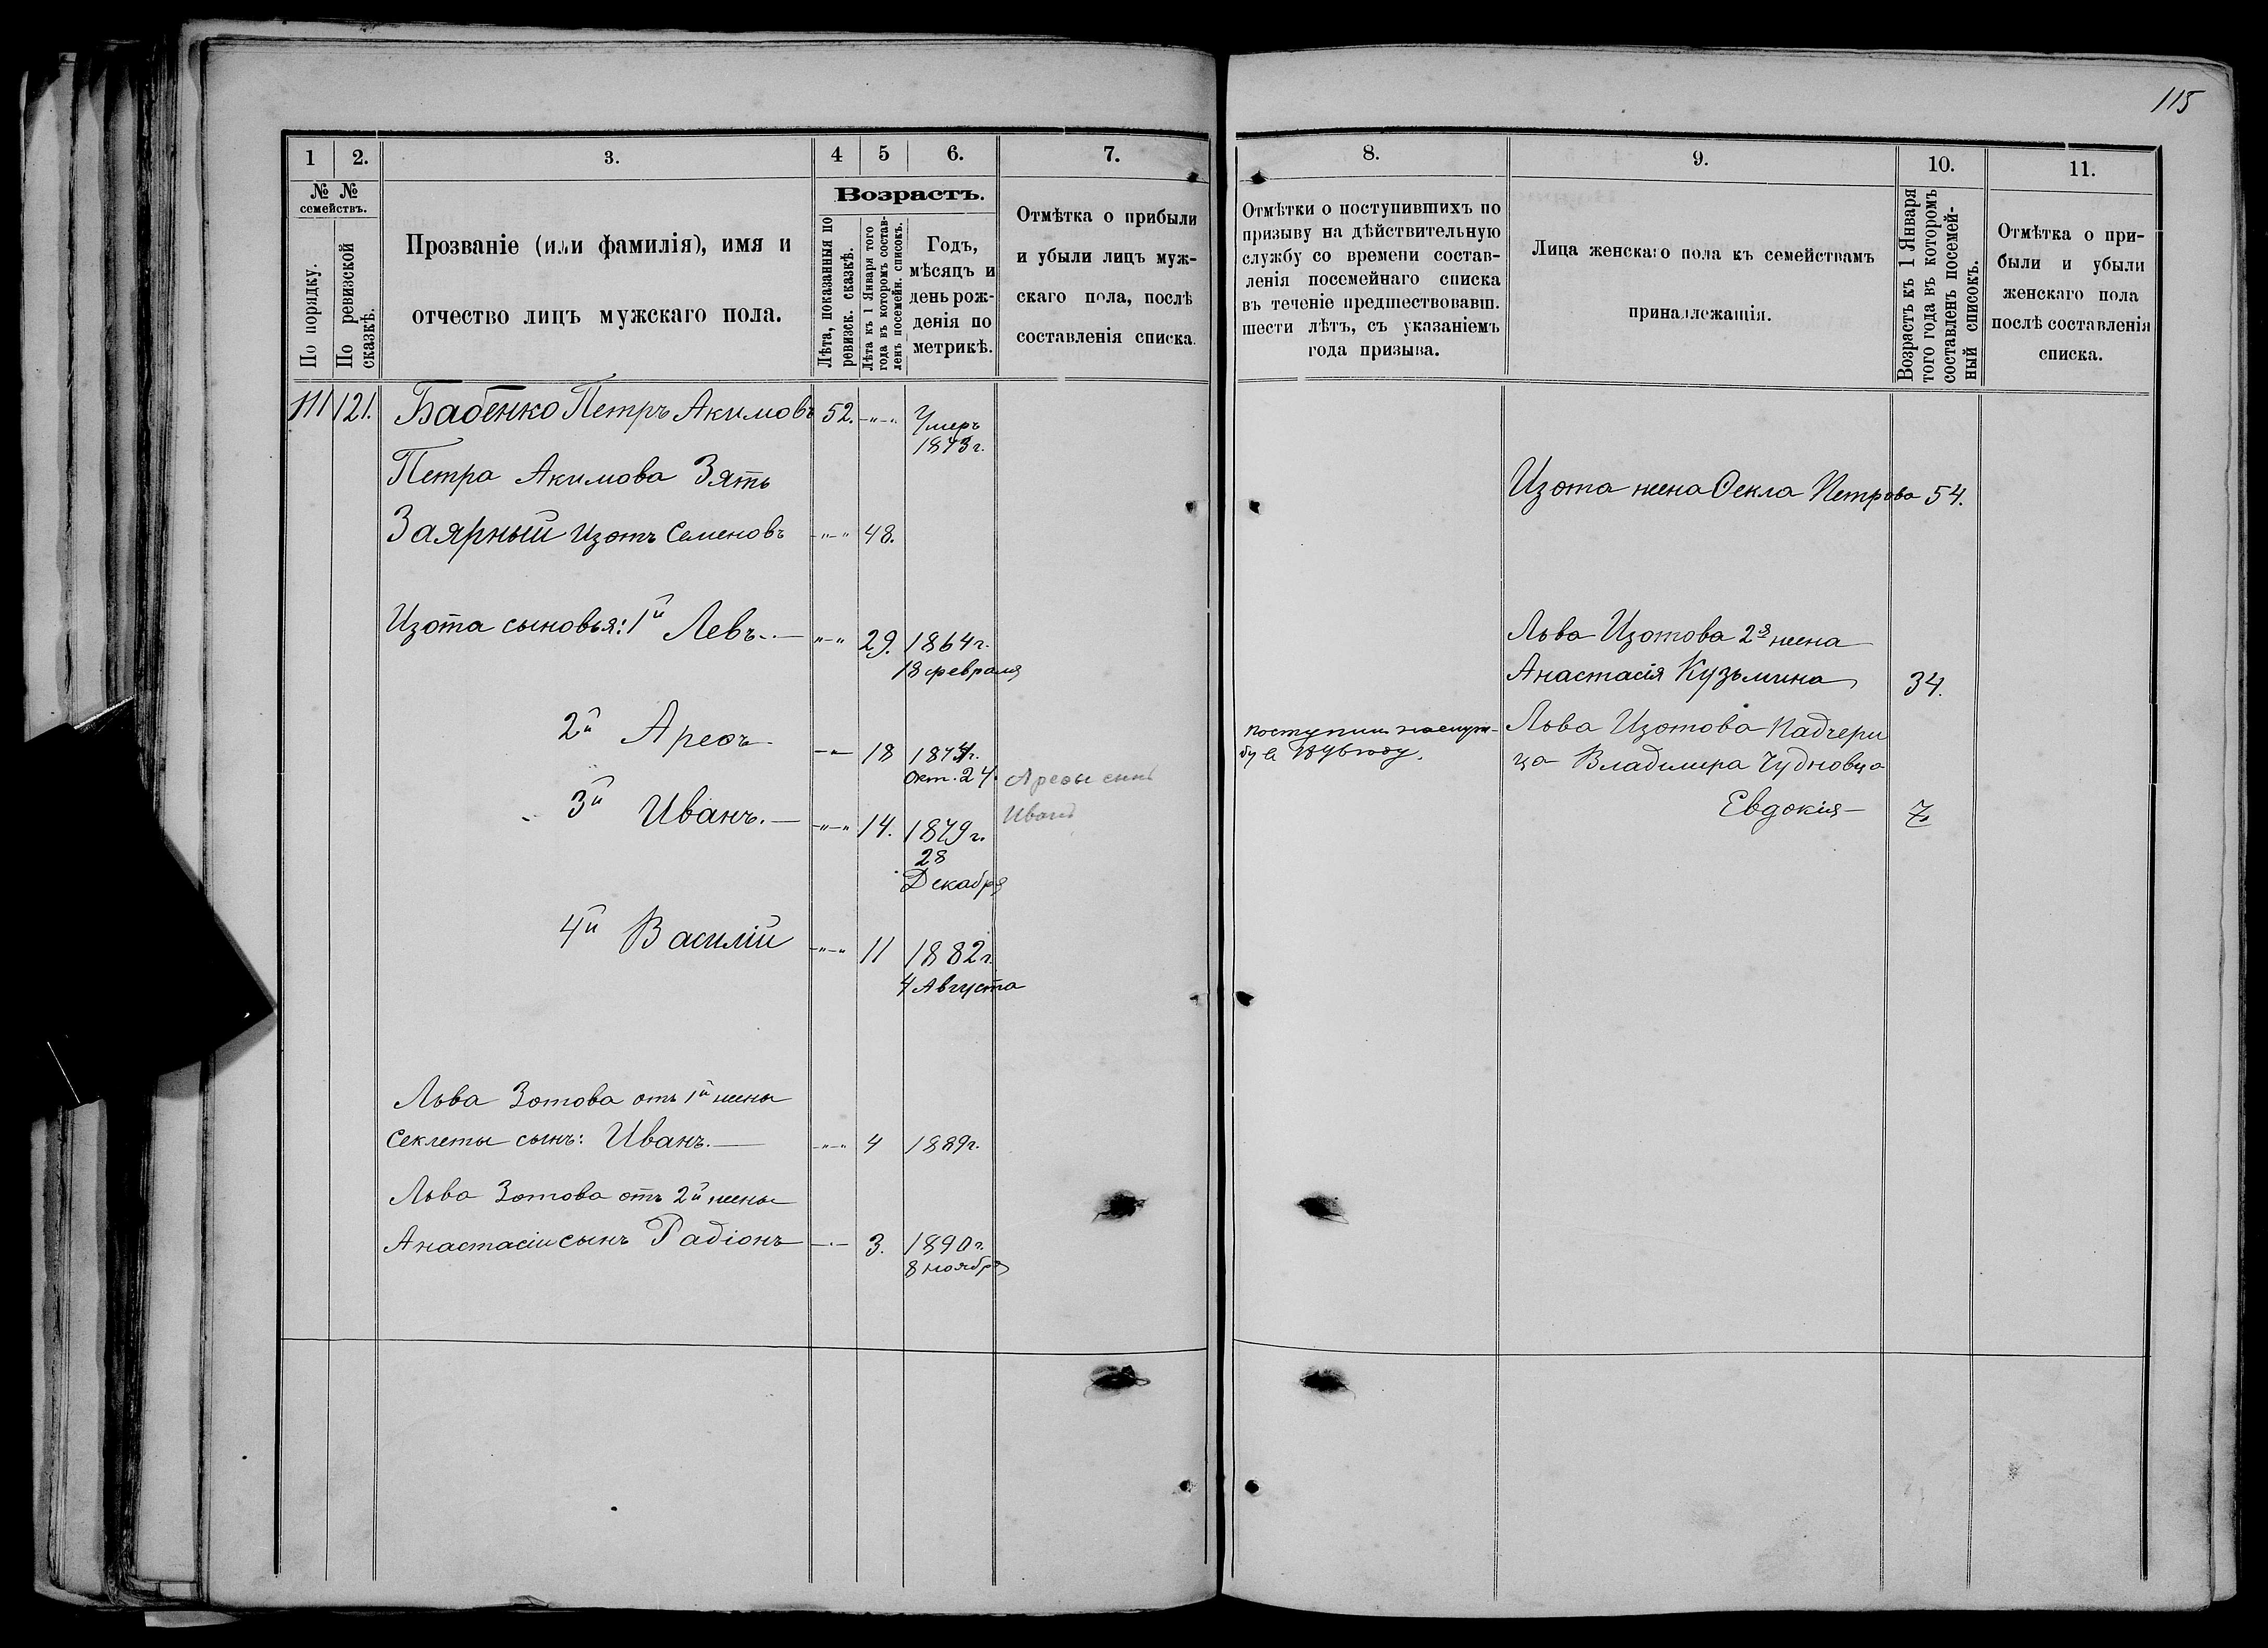 115
1
2.
3.
4
5
6.
7.
№ №
семействъ.
По порядку.
По ревизской
сказкѣ.
Прозваніе (или фамилія), имя и
отчество лицъ мужскаго пола.
Возрастъ.
Лѣта, показанныя по
ревизск. сказкѣ.
Лѣта къ 1 Января того
года въ которомъ состав-
ленъ посемейн. списокъ.
Годъ,
мѣсяцъ и
день рож-
денія по
метрикѣ.
Отмѣтка о прибыли
и убыли лицъ муж-
скаго пола, послѣ
составленія списка.
111 121. Бабенко Петръ Акимовъ 52. Умеръ
1873 г.
Петра Акимова Зять
Заярный Изотъ Семеновъ 48.
Изота сыновья: 1й Левъ 29. 1864 г.
18 февраля
2й Ареѳъ 18 1874 г.
Окт. 24.
Ареѳы сынъ
Иванъ
3й Иванъ. 14. 1879 г.
28
Декабря
4й Василій 11 1882 г.
4 Августа
Льва Зотова отъ 1й жены
Секлеты сынъ: Иванъ. 4 1889 г.
Льва Зотова отъ 2й жены
Анастасіи сынъ Радіонъ 3. 1890 г.
8 ноября
8.
9.
10.
11.
Отмѣтки о поступившихъ по
призыву на дѣйствительную
службу со времени состав-
ленія посемейнаго списка
въ теченіе предшествовавш.
шести лѣтъ, съ указаніемъ
года призыва.
Лица женскаго пола къ семействамъ
принадлежащія.
Возрастъ къ 1 Января
того года въ которомъ
составленъ посемей-
ный списокъ.
Отмѣтка о при-
были и убыли
женскаго пола
послѣ составленія
списка.
Изота жена Ѳекла Петрова 54.
Льва Изотова 2я жена
Анастасія Кузьмина 34.
поступилъ на служ-
бу въ году.
Льва Изотова Падчери
ца Владимира Чудновца
Евдокія 7.